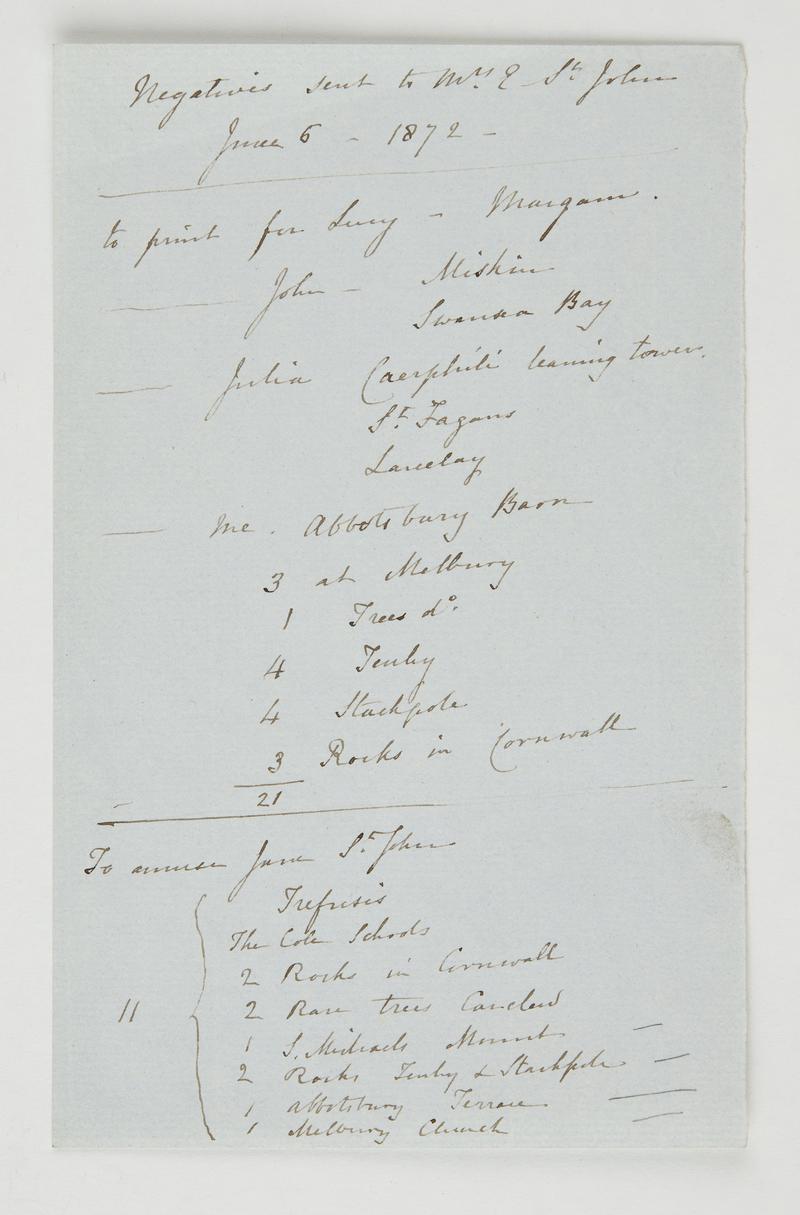 Negatives sent to Mrs E St John
June 6 - 1872 -
to print for Lucy - Margam.
—— John - Miskin
Swansea Bay
—— Julia Caerphili leaning tower.
St Fagans
Lanelay
—— Me. Abbotsbury Barn
3 at Melbury
1 Trees do.
4 Tenby
4 Stackpole
3 Rocks in Cornwall
21
To amuse Jane St John
Trefusis
The Cole Schools
2 Rocks in Cornwall
2 Rare trees Carclew
11
1 S. Michaels Mount —
2 Rocks Tenby & Stackpole —
1 Abbotsbury Terrace —
1 Melbury Church —